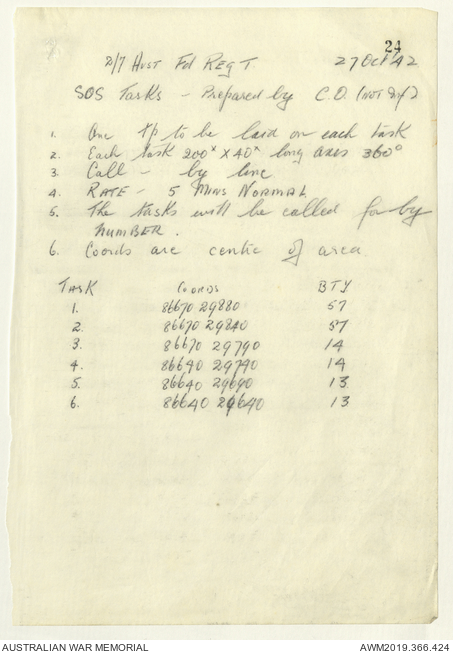 24
2/7 Aust Fd Regt. 27 Oct 42
SOS Tasks - Prepared by C.O. (not 2/7)
1. One tp to be laid on each task
2. Each task 200ˣ X 40ˣ long axis 360°
3. Call - by line
4. RATE - 5 MINS NORMAL
5. The tasks will be called for by
NUMBER.
6. Coords are centre of area
TASK COORDS BTY
1. 86670 29880 57
2. 86670 29840 57
3. 86670 29790 14
4. 86640 29740 14
5. 86640 29690 13
6. 86640 29640 13
AUSTRALIAN WAR MEMORIAL AWM2019.366.424